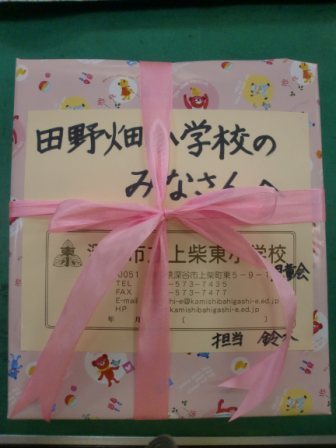 田野畑小学校の
みなさんへ
東小
市立上柴東小学校
0051 深谷市上柴町東5-9-1
TEL -573-7435
FAX -573-7477
E-mail shi-e@kamishibahigashi-e.ed.jp
HP kamishibahigashi-e.ed.jp
年 月 [
児童会
担当 鈴木